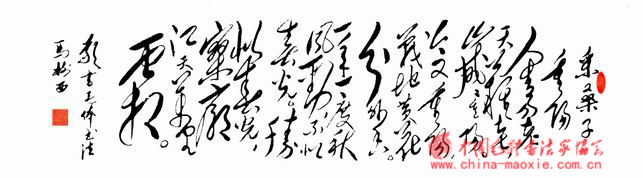 采桑子
重阳
人生易老
天难老岁
岁重阳
今又重阳
战地黄花
分外香。
一年一度秋
风劲，不似
春光。胜
似春光，
寥廓
江天万里
霜。
书毛体书法
中国毛体书法家协会
www.china-maoxie.com.cn